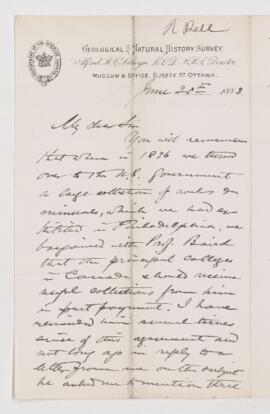 R Bell
GEOLOGICAL & NATURAL HISTORY SURVEY.
Alfred R. C. Selwyn, L.L.D., F.R.S. Director
MUSEUM & OFFICE, SUSSEX ST. OTTAWA.
June 20th 1883
My dear Sir
You will remember
that when in 1876 we turned
over to the U.S. Government
a large collection of rocks &
minerals, which we had ex
hibited in Philadelphia, we
bargained with Prof. Baird
that the principal colleges
in Canada should receive
collections from him
in part payment. I have
reminded him several times
since of this agreement and
not long ago in reply to a
letter from me on the subject
he asked me to mention three